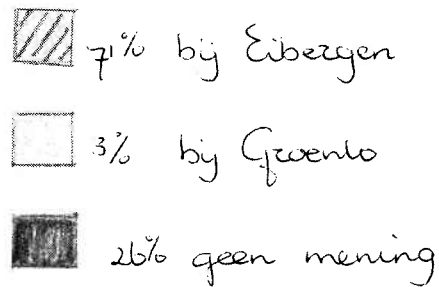 71% bij Eibergen
3% bij Groenlo
26% geen mening